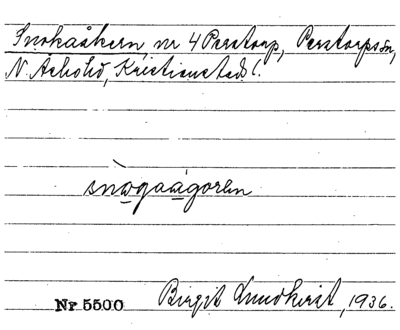 Snokaåkern, nr 4 Perstorp, Perstorps sn,
N. Åsbo hd, Kristianstads l.
snogaågorn
Nr 5500 Birgit Lundkvist, 1936.